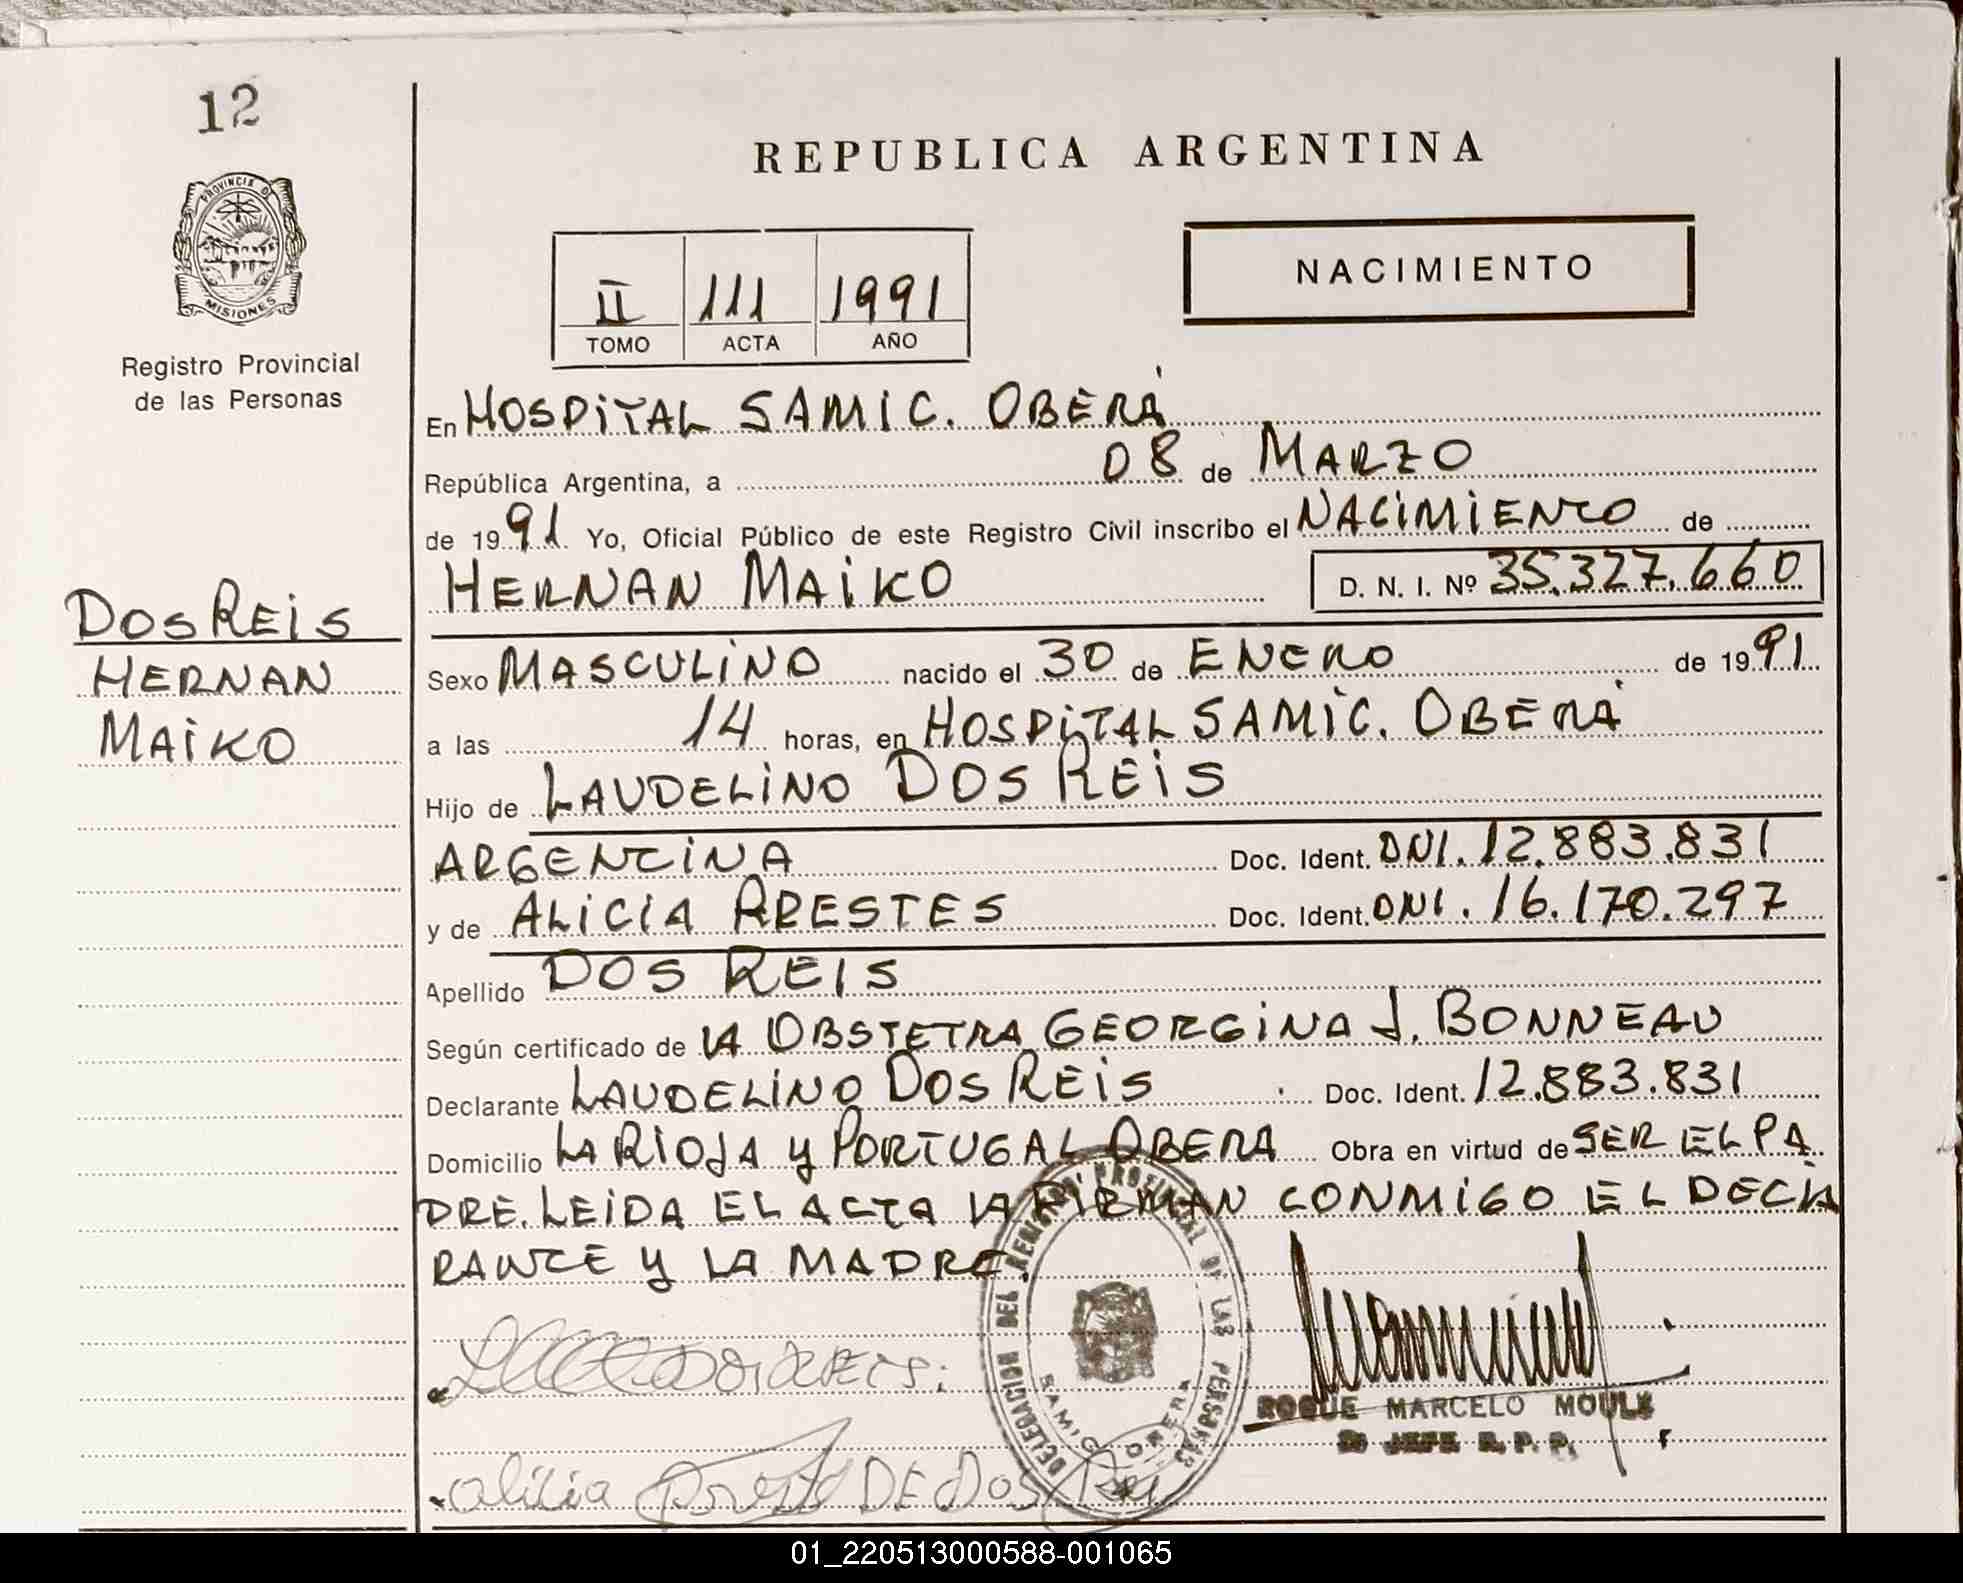 12
REPUBLICA ARGENTINA
PROVINCIA DE
MISIONES
Registro Provincial
de las Personas
NACIMIENTO
II 111 1991
TOMO ACTA AÑO
En HOSPITAL SAMIC. OBERÁ
República Argentina, a 08 de MARZO
de 1991 Yo, Oficial Público de este Registro Civil inscribo el NACIMIENTO de
HERNAN MAIKO D. N. I. Nº 35.327.660
DOS REIS
HERNAN
MAIKO
Sexo MASCULINO nacido el 30 de ENERO de 1991
a las 14 horas, en HOSPITAL SAMIC. OBERÁ
Hijo de LAUDELINO DOS REIS
ARGENTINA Doc. Ident. DNI. 12.883.831
y de ALICIA PRESTES Doc. Ident. DNI. 16.170.297
Apellido DOS REIS
Según certificado de LA OBSTETRA GEORGINA J. BONNEAU
Declarante LAUDELINO DOS REIS Doc. Ident. 12.883.831
Domicilio LA RIOJA y PORTUGAL OBERA Obra en virtud de SER EL PA
DRE. LEIDA EL ACTA LA FIRMAN CONMIGO EL DECLA
RANTE Y LA MADRE.
DELEGACION DEL REGISTRO PROVINCIAL DE LAS PERSONAS
SAMIC OBERA
DOS REIS
ROQUE MARCELO MOULE
JEFE R. P. P.
Alicia DE DOS
01_220513000588-001065